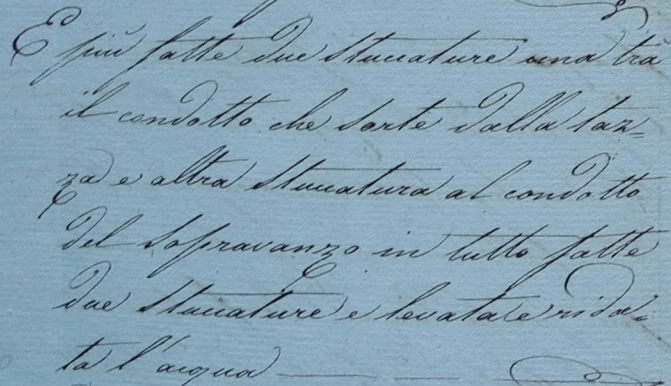 E più fatte due stuccature una trà
il condotto che sorte dalla taz=
za e altra stuccatura al condotto
del sopravanzo in tutto fatte
due stuccature e levata e rida=
ta l'acqua